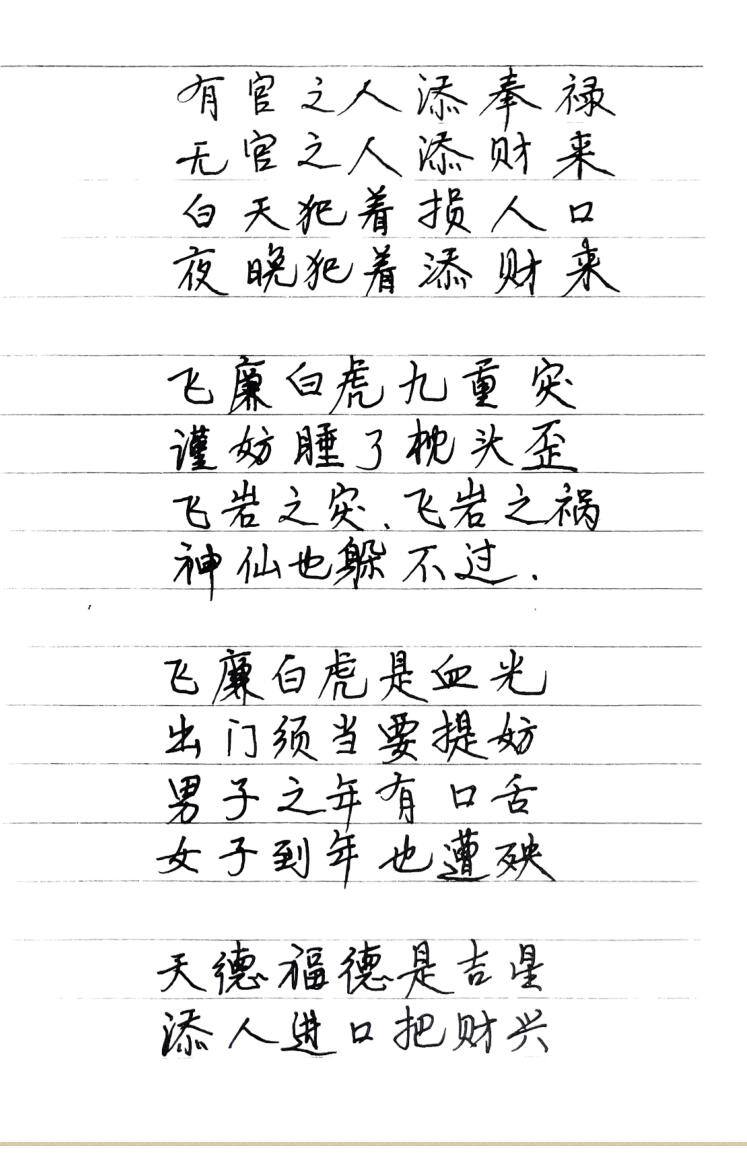 有官之人添奉禄
无官之人添财来
白天犯着损人口
夜晚犯着添财来
飞廉白虎九重突
谨妨睡了枕头歪
飞岩之突、飞岩之祸
神仙也躲不过.
飞廉白虎是血光
出门须当要提妨
男子之年有口舌
女子到年也遭殃
天德福德是吉星
添人进口把财兴